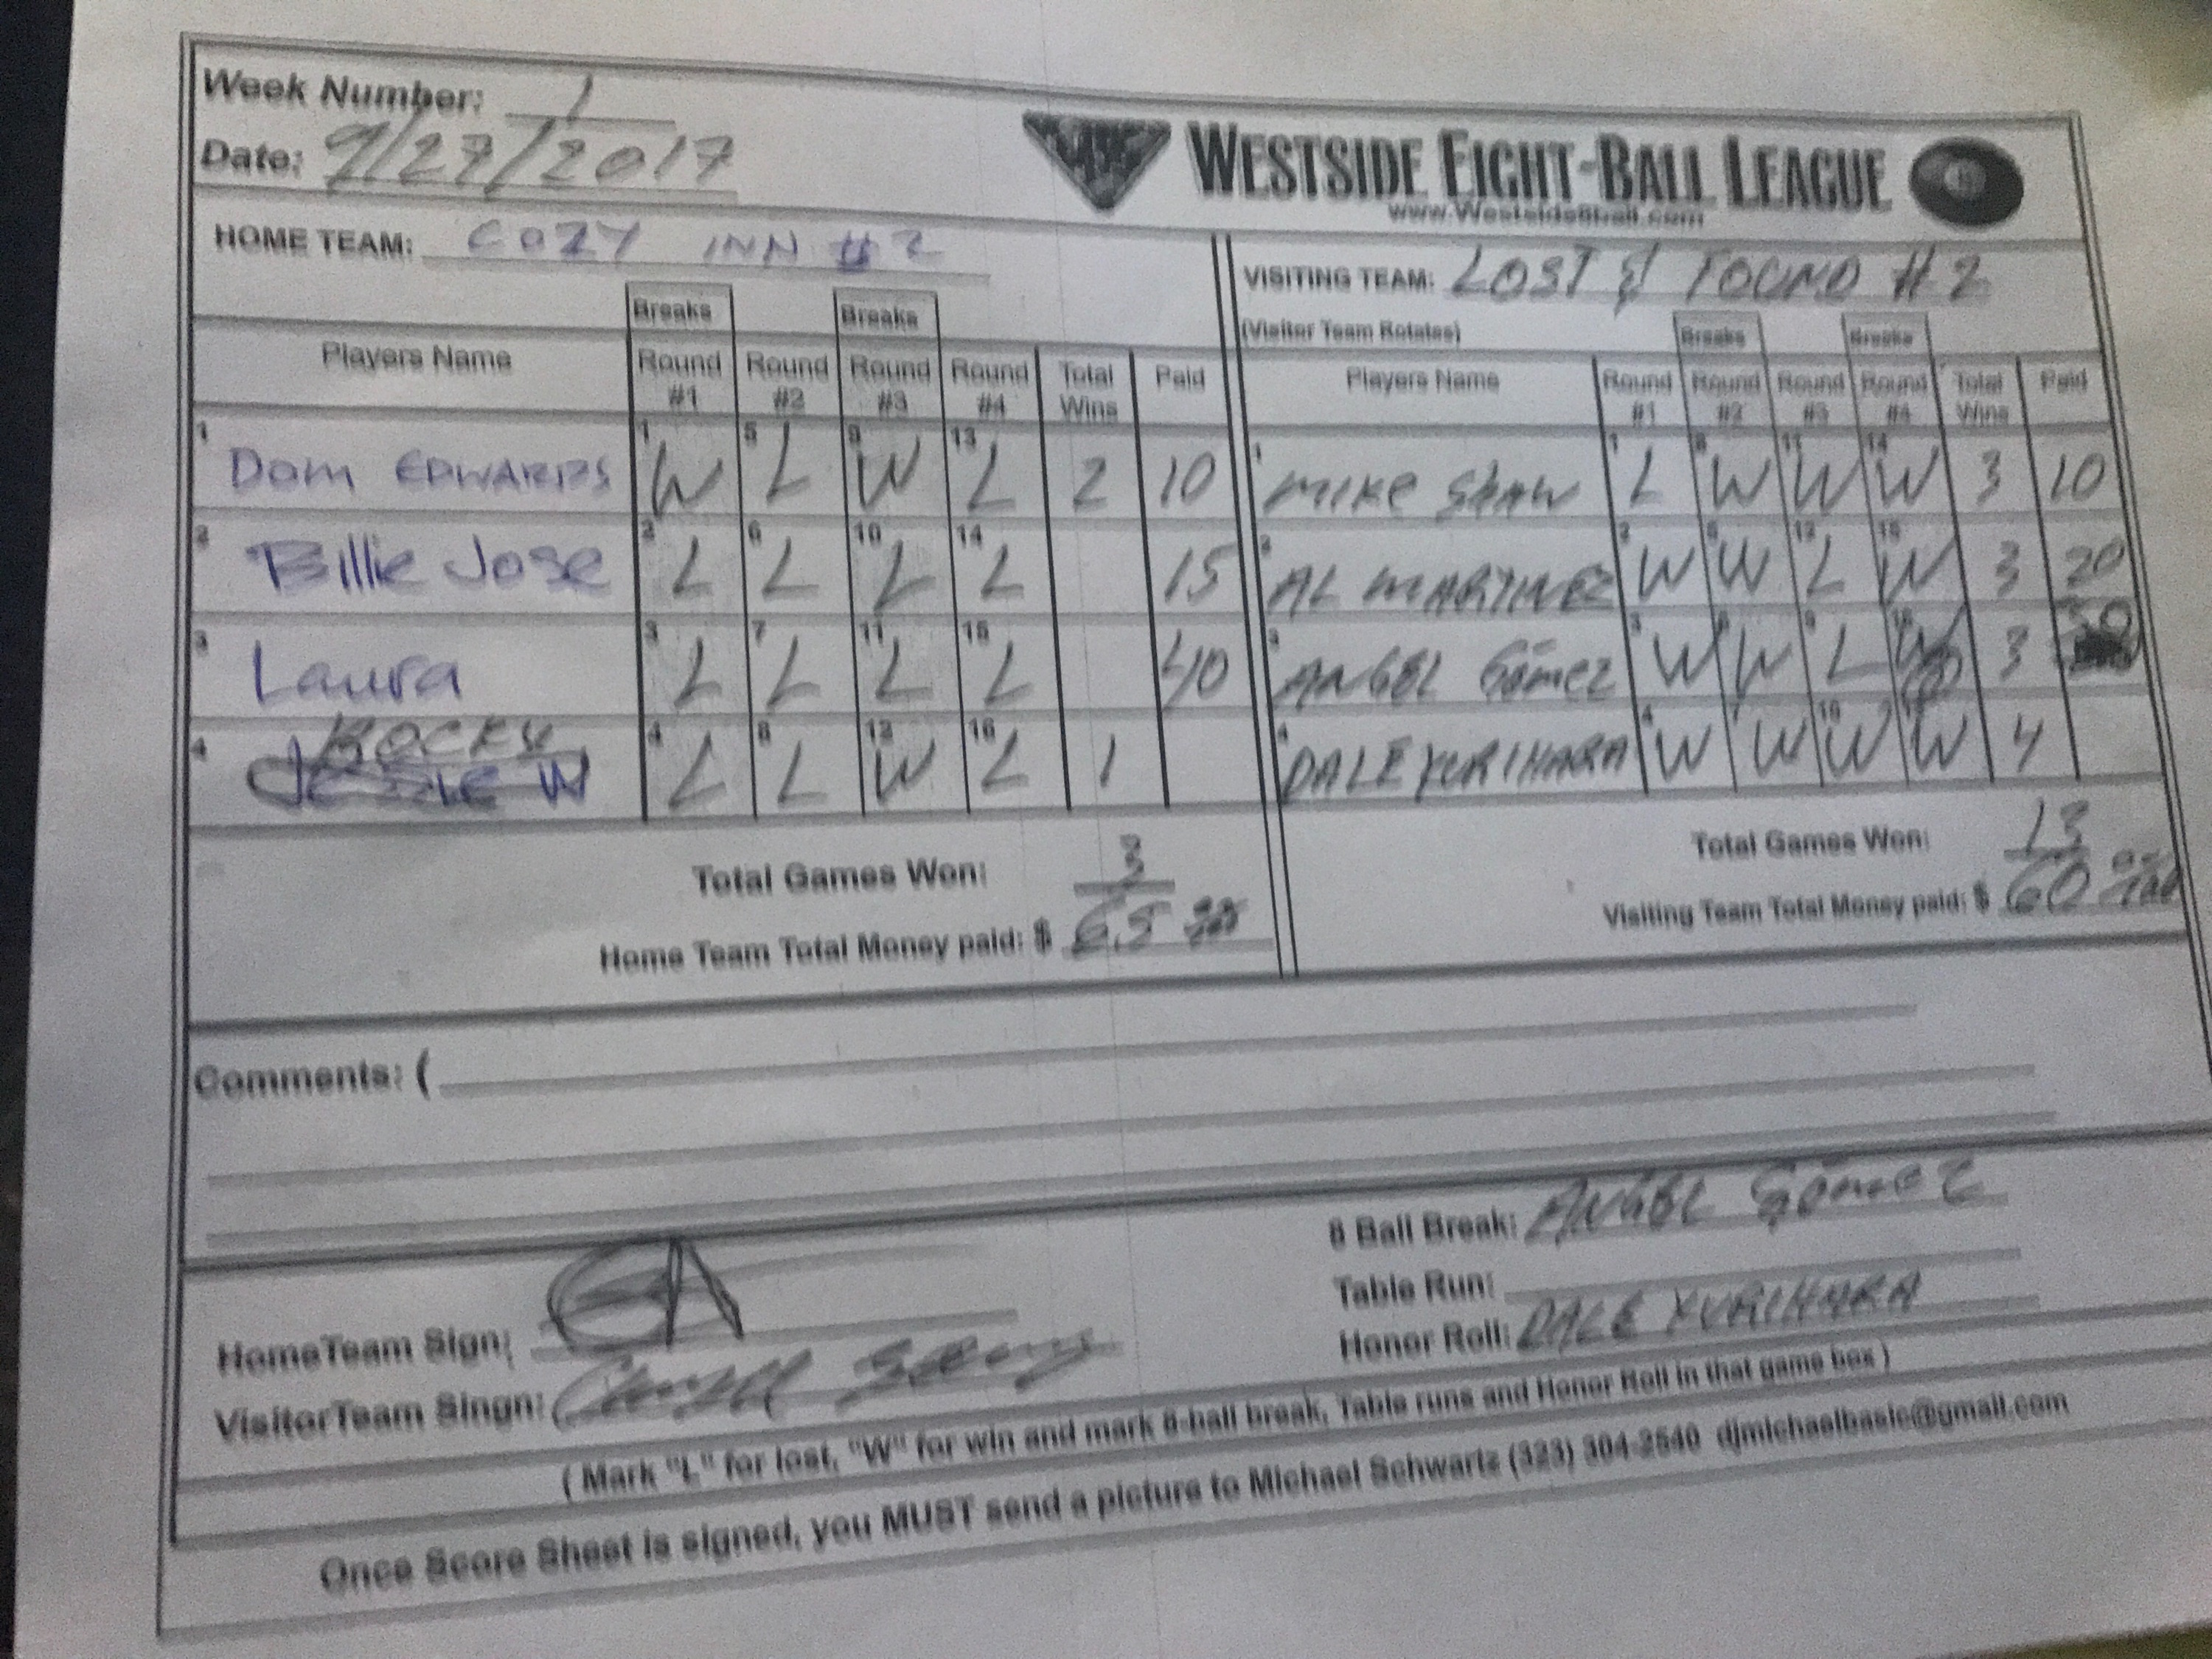 Week Number: 1
Date: 9/27/2017
WESTSIDE EIGHT-BALL LEAGUE
www.Westside8ball.com
HOME TEAM: COZY INN #2
VISITING TEAM: LOST & FOUND #2
(Visitor Team Rotates)
Breaks Breaks
Breaks Breaks
Players Name Round #1 Round #2 Round #3 Round #4 Total Wins Paid
Players Name Round #1 Round #2 Round #3 Round #4 Total Wins Paid
1 Dom EDWARDS 1 W 5 L 9 W 13 L 2 10
1 MIKE SHAW 1 L W 11 W 14 W 3 10
2 Billie Jose 2 L 6 L 10 L 14 L 15
2 AL MARTINEZ 2 W W 12 L W 3 20
3 Laura 3 L 7 L 11 L 15 L 40
3 ANGEL Gómez 3 W W 9 L W 3 30
4 ROCKY 4 L 8 L 12 W 16 L 1
4 DALE KURIHARA 4 W W 10 W W 4
Total Games Won: 3
Home Team Total Money paid: $ 65
Total Games Won: 13
Visiting Team Total Money paid: $ 60
Comments: (
8 Ball Break: ANGEL Gómez
Table Run:
Honor Roll: DALE KURIHARA
HomeTeam Sign:
VisitorTeam Singn:
( Mark "L" for lost, "W" for win and mark 8-ball break, Table runs and Honor Roll in that game box )
Once Score Sheet is signed, you MUST send a picture to Michael Schwartz (323) 304-2540 djmichaelbasic@gmail.com